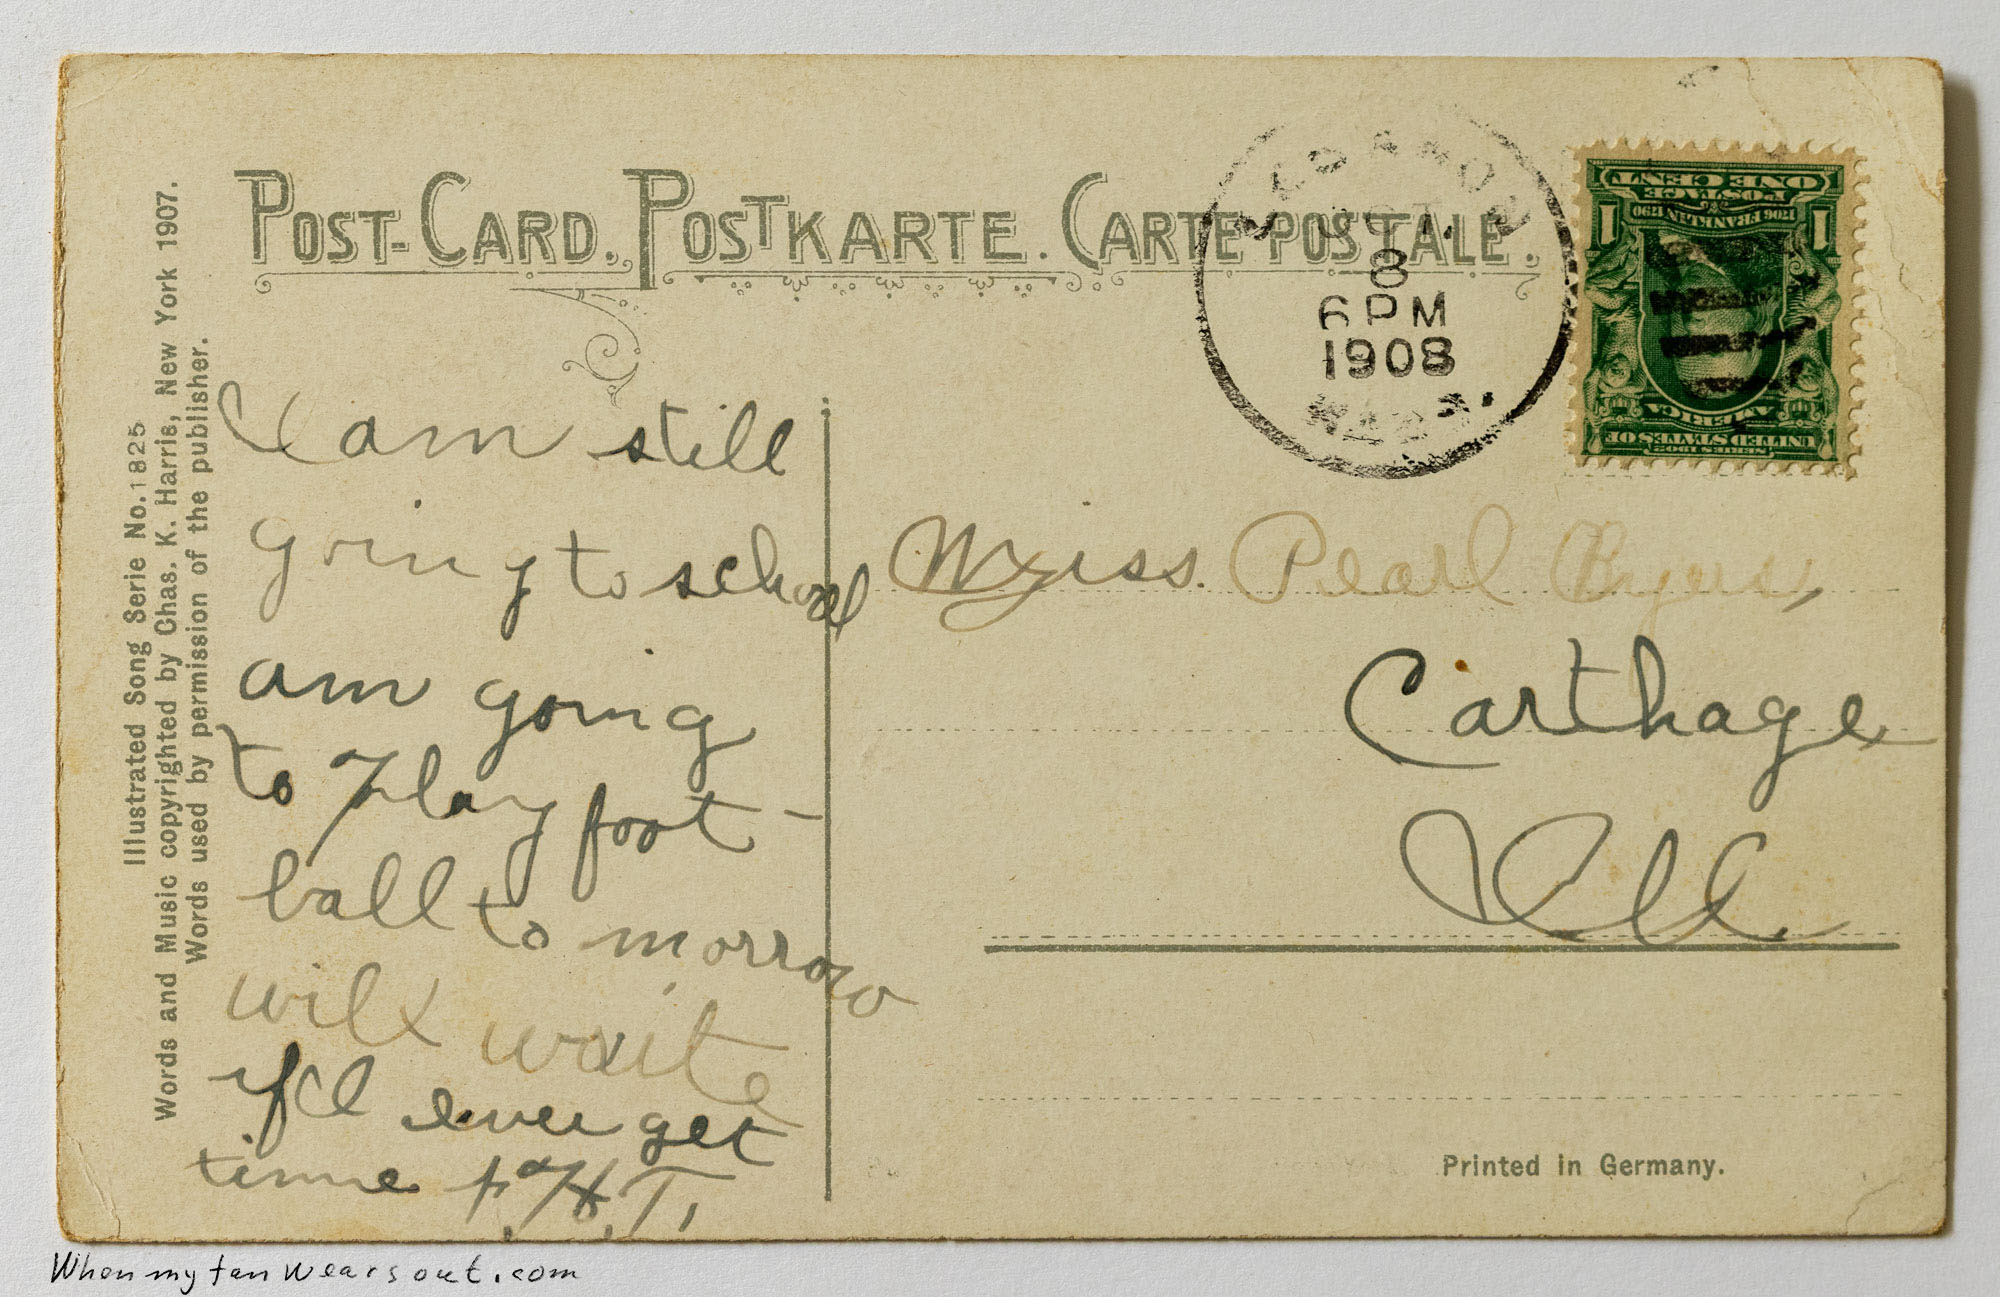 Post-Card. Postkarte. Carte postale.
Illustrated Song Serie No. 1825
Words and Music copyrighted by Chas. K. Harris, New York 1907.
Words used by permission of the publisher.
OCT
8
6 PM
1908
ONE CENT
POSTAGE
1706 FRANKLIN 1790
1 1
AMERICA
UNITED STATES OF
SERIES 1902
I am still
going to school
am going
to play foot-
ball to morrow
will waite
if I ever get
time
Miss. Pearl Byers,
Carthage
Ill.
Printed in Germany.
When my fan Wears out.com